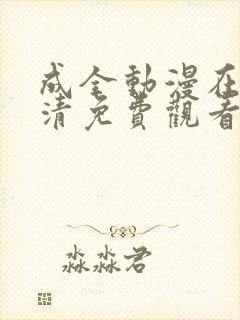 成全動漫在
清免費觀看
淼淼君